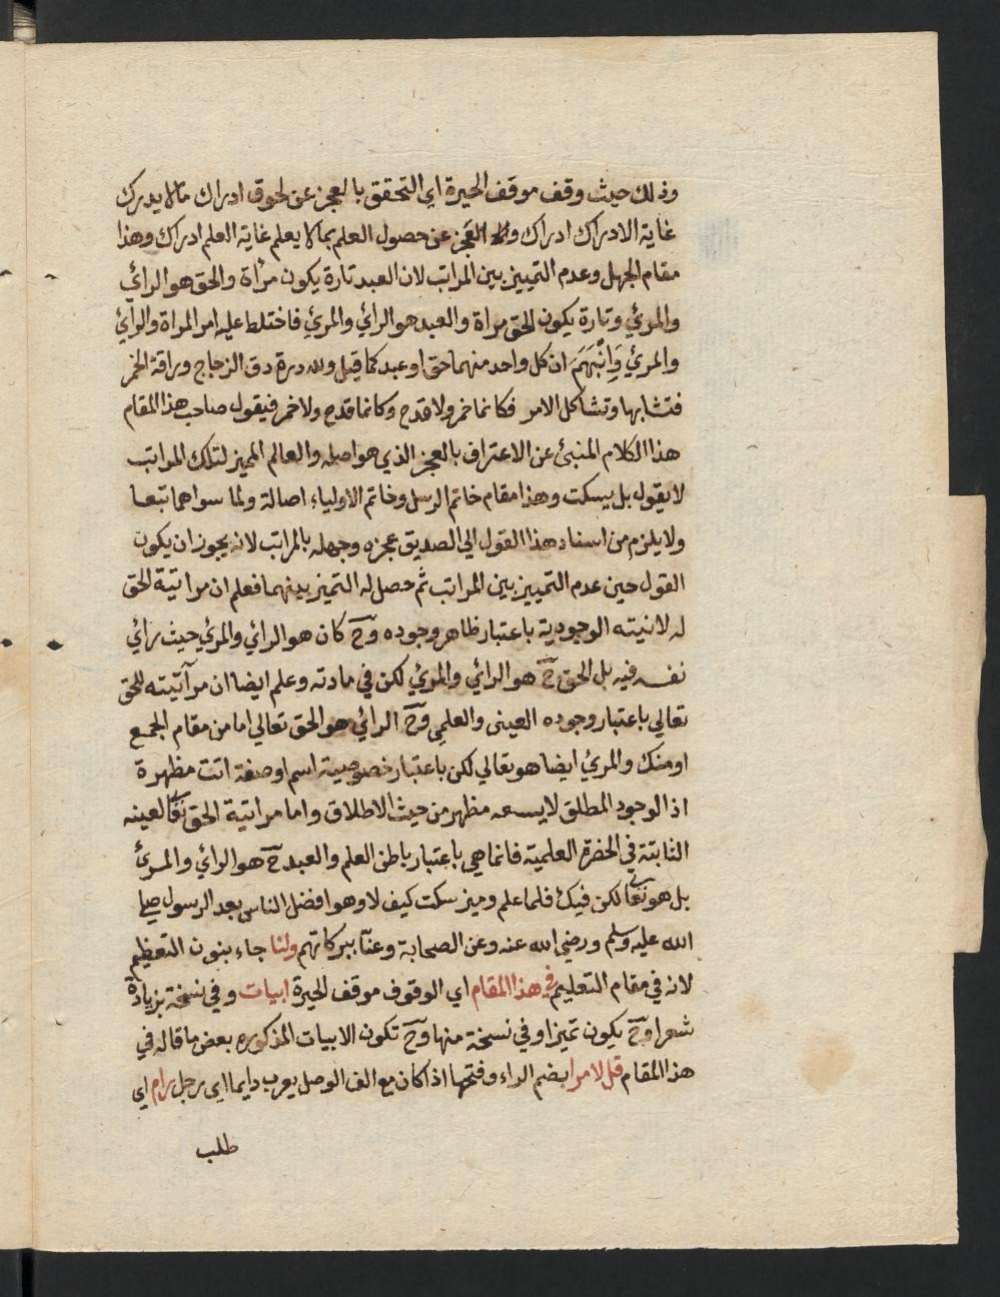 وذلك حيث وقف موقف الحيرة اي التحقق بالعجز عن لحوق ادراك مالا يدرك
غاية الادراك ادراك والعجز عن حصول العلم بما لا يعلم غاية العلم ادراك وهذا
مقام الجهل وعدم التمييز بين المراتب لان العبد تارة يكون مرأة والحق هو الرائي
والمرئي وتارة يكون الحق مراة والعبد هو الرأي والمرئي فاختلط عليه امر المراة والرائي
والمرئي وانبهم ان كل واحد منهما حق او عبد كما قيل ولله دره دق الزجاج وراقة الخمر
فتشابها وتشاكل الامر فكانما خمر ولا قدح وكانما قدح ولا خمر فيقول صاحب هذا المقام
هذا الكلام المنبئ عن الاعتراف بالعجز الذي هو اصله والعالم المميز لتلك المراتب
لا يقول بل يسكت وهذا مقام خاتم الرسل وخاتم الاولياء اصالة ولما سواهما تبعا
ولا يلزم من اسناد هذا القول الي الصديق عجزه وجهله بالمراتب لانه يجوز ان يكون
القول حين عدم التمييز بين المراتب ثم حصل له التميز بينهما فعلم ان مراتية الحق
له لانيته الوجودية باعتبار ظاهر وجوده وح كان هو الرائي والمرئي حيث رائي
نفسه فيه بل الحق ح هو الرائي والمرئي لكن في مادته وعلم ايضا ان مرآتيته للحق
تعالي باعتبار وجوده العيني والعلمي وح الرائي هو الحق تعالي اما من مقام الجمع
او منك والمرئي ايضا هو تعالي لكن باعتبار خصوصية اسم او صفة انت مظهرة
اذ الوجود المطلق لا يسعه مظهر من حيث الاطلاق واما مراتية الحق تعا لعينه
الثابتة في الحضرة العلمية فانما هي باعتبار باطن العلم والعبد ح هو الرائي والمرئ
بل هو تعا لكن فيك فلما علم وميز سكت كيف لا وهو افضل الناس بعد الرسول صلي
الله عليه وسلم ورضي الله عنه وعن الصحابة وعنا ببركاتهم ولنا جاء بنون التعظيم
لانه في مقام التعليم في هذا المقام اي الوقوف موقف الحيرة ابيات وفي نسخة بزيادة
شعرا وح يكون تميزا وفي نسخة منها وح تكون الابيات المذكوره بعض ما قاله في
هذا المقام قل لامرا بضم الراء وفتحها اذا كان مع الف الوصل يعرب دايما اي رجل رام اي
طلب